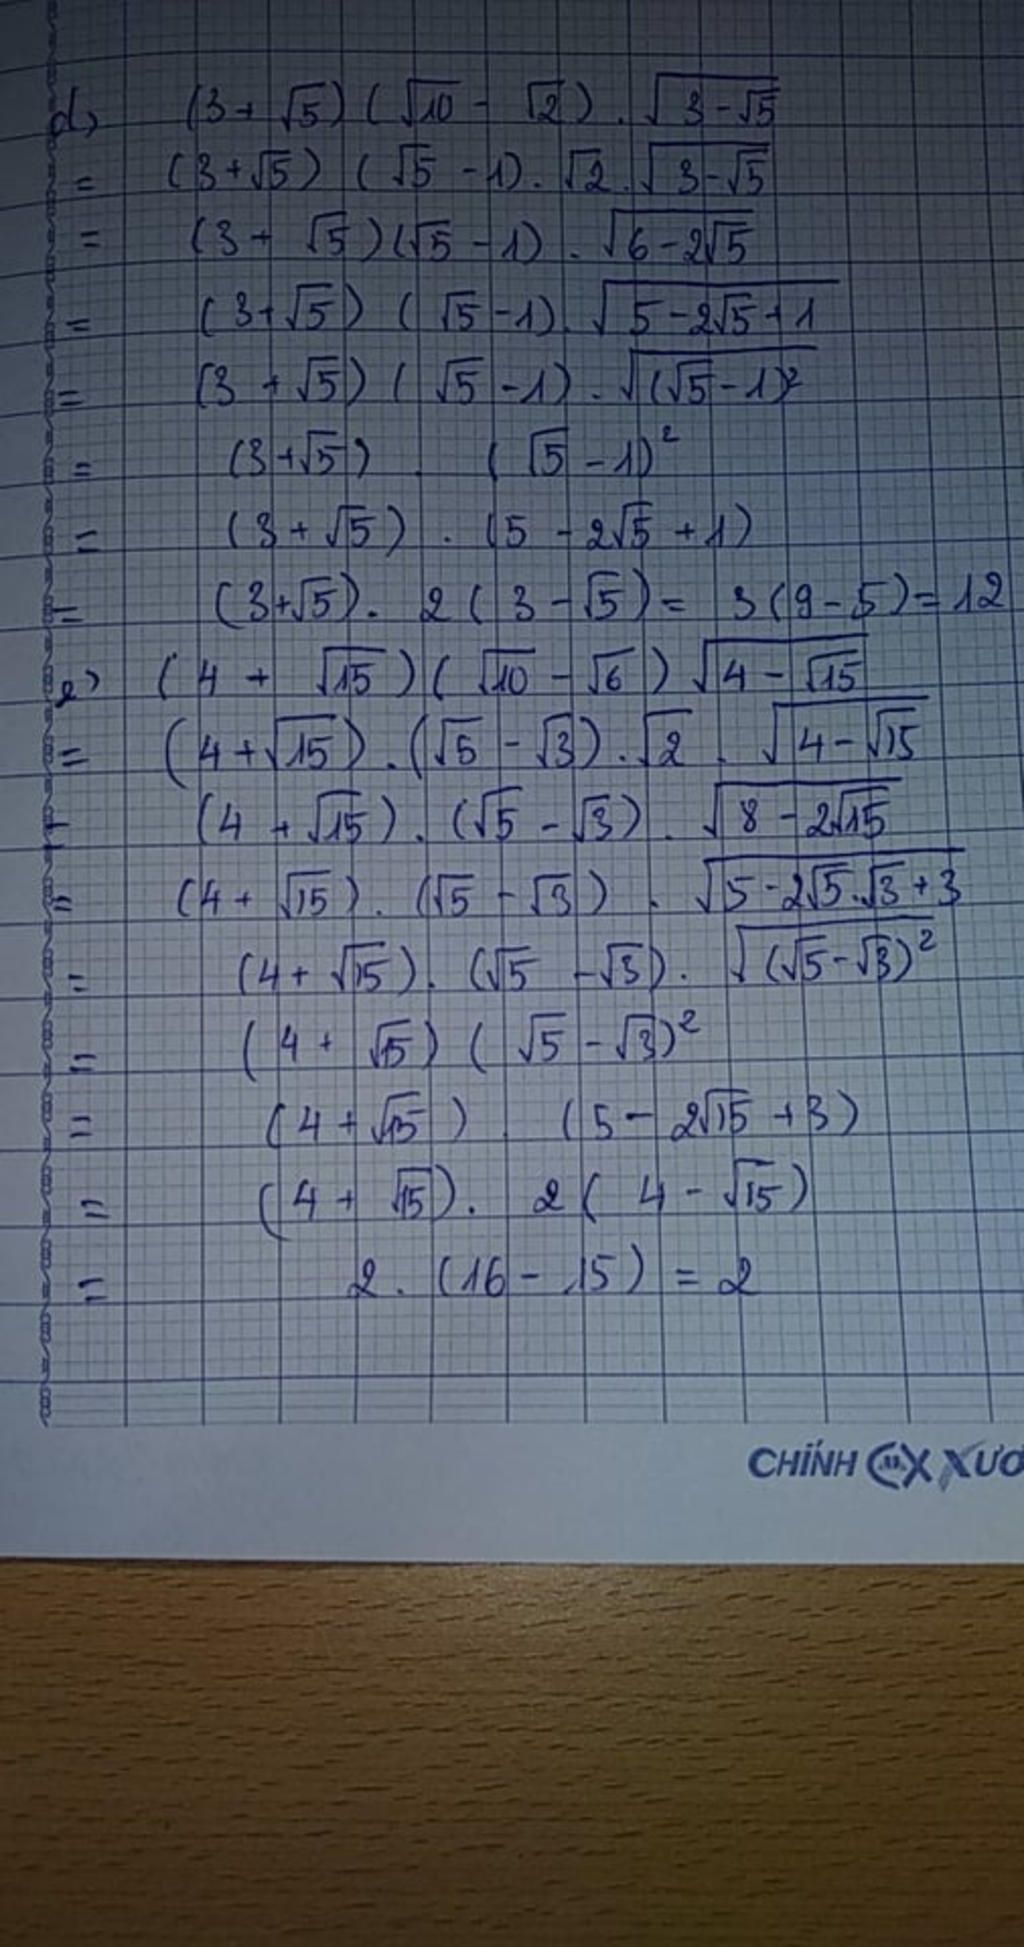 d) (3 + √5) (√10 - √2) . √(3 - √5)
= (3 + √5) (√5 - 1) . √2 . √(3 - √5)
= (3 + √5) (√5 - 1) . √(6 - 2√5)
= (3 + √5) (√5 - 1) . √(5 - 2√5 + 1)
= (3 + √5) (√5 - 1) . √((√5 - 1)²)
= (3 + √5) . (√5 - 1)²
= (3 + √5) . (5 - 2√5 + 1)
= (3 + √5) . 2 (3 - √5) = 3 (9 - 5) = 12
e) (4 + √15) (√10 - √6) √(4 - √15)
= (4 + √15) . (√5 - √3) . √2 . √(4 - √15)
= (4 + √15) . (√5 - √3) . √(8 - 2√15)
= (4 + √15) . (√5 - √3) . √(5 - 2√5.√3 + 3)
= (4 + √15) . (√5 - √3) . √((√5 - √3)²)
= (4 + √15) (√5 - √3)²
= (4 + √15) . (5 - 2√15 + 3)
= (4 + √15) . 2 (4 - √15)
= 2 . (16 - 15) = 2
CHÍNH